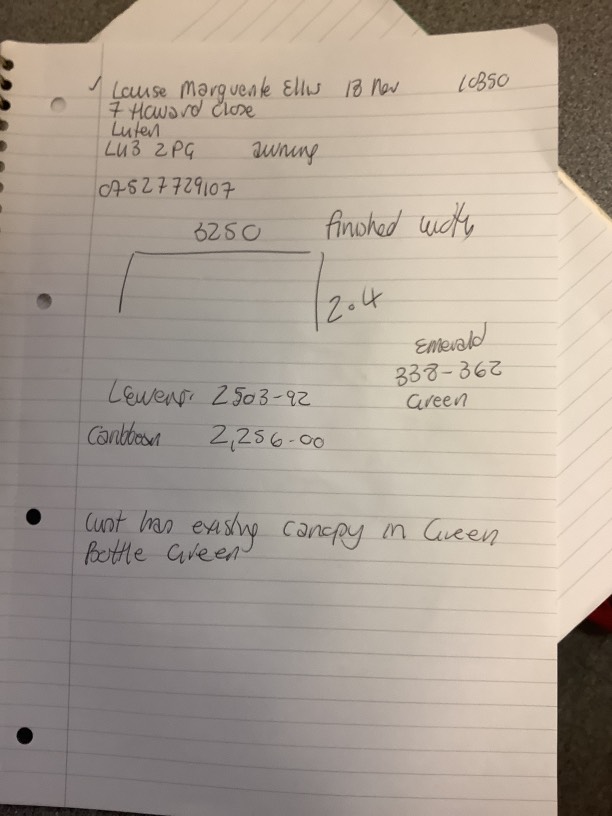 ✓ Louise Marguerite Ellis 13 Nov
7 Howard Close
Luton
LU3 2PG awning
07527729107
3250 finished width
2.4
Emerald
338-362
Green
Lewens. 2503-92
Caribbean 2,256-00
Cust has existing canopy in Green
Bottle Green